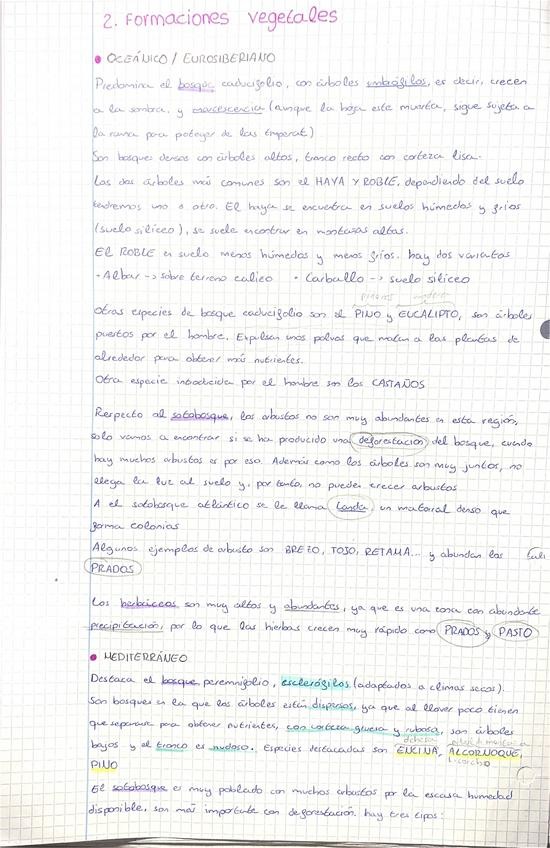 2. Formaciones vegetales
• OCEÁNICO / EUROSIBERIANO
Predomina el bosque caducifolio, con árboles umbrófilos, es decir, crecen
a la sombra, y marcescencia (aunque la hoja este muerta, sigue sujeta a
la rama para proteger de las temperat)
Son bosques densos con árboles altos, tronco recto con corteza lisa.
Los dos árboles más comunes son el HAYA Y ROBLE, dependiendo del suelo
tendremos uno o otro. El haya se encuentra en suelos húmedos y fríos
(suelo silíceo), se suele encontrar en montañas altas.
El ROBLE en suelo menos húmedos y menos fríos. hay dos variantes
• Albar -> sobre terreno calizo • Carballo -> suelo silíceo
Otras especies de bosque caducifolio son el PINO y EUCALIPTO, son árboles
puestos por el hombre. Expulsan unos polvos que matan a las plantas de
alrededor para obtener más nutrientes.
Otra especie introducida por el hombre son los CASTAÑOS
Respecto al sotobosque, los arbustos no son muy abundantes en esta región,
solo vamos a encontrar si se ha producido una deforestación del bosque, cuando
hay muchos arbustos es por eso. Además como los árboles son muy juntos, no
llega la luz al suelo y, por tanto, no pueden crecer arbustos
A el sotobosque atlántico se le llama Landa, un matorral denso que
forma colonias
Algunos ejemplos de arbusto son BREZO, TOJO, RETAMA... y abundan los
PRADOS
Los herbáceos son muy altos y abundantes, ya que es una zona con abundante
precipitación, por lo que las hierbas crecen muy rápido como PRADOS y PASTO
• MEDITERRÁNEO
Destaca el bosque perennifolio, esclerófilos (adaptados a climas secos).
Son bosques en la que los árboles están dispersos, ya que al llover poco tienen
que separarse para obtener nutrientes, con corteza gruesa y rubosa, son árboles
dehesa
bajos y el tronco es nudoso. Especies destacadas son ENCINA, ALCORNOQUE,
L. corcho
PINO
El sotobosque es muy poblado con muchos arbustos por la escasa humedad
disponible, son más importante con deforestación. hay tres tipos: